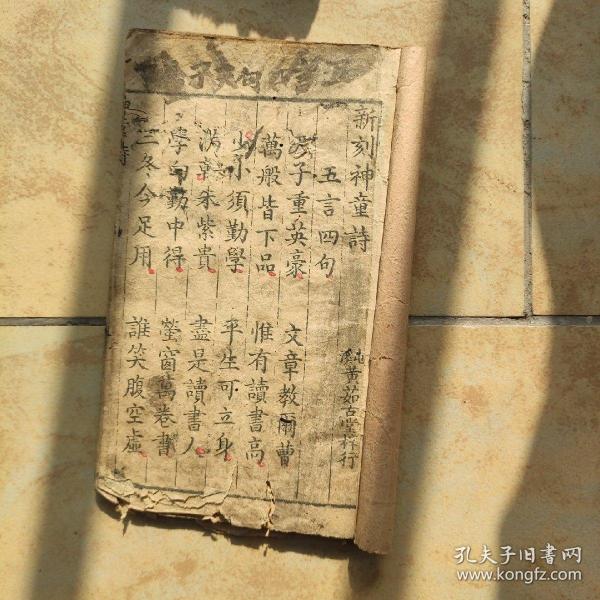 新刻神童詩
黃茹古堂梓行
五言四句
天子重英豪 文章教爾曹
萬般皆下品 惟有讀書高
少小須勤學 平生可立身
滿朝朱紫貴 盡是讀書人
學向勤中得 螢窗萬卷書
三冬今足用 誰笑腹空虛
孔夫子旧书网
www.kongfz.com